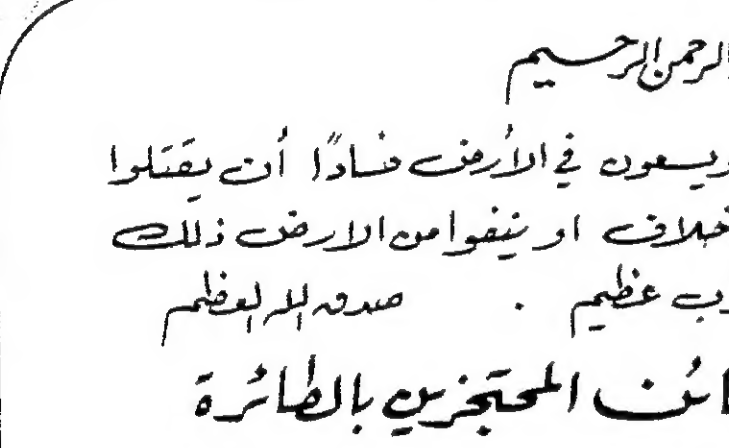 الرحمن الرحيم
ويسعون في الأرض فسادًا أن يقتلوا
خلاف او ينفوا من الارض ذلك
عظيم . صدق الله العظيم
المحتجزين بالطائرة